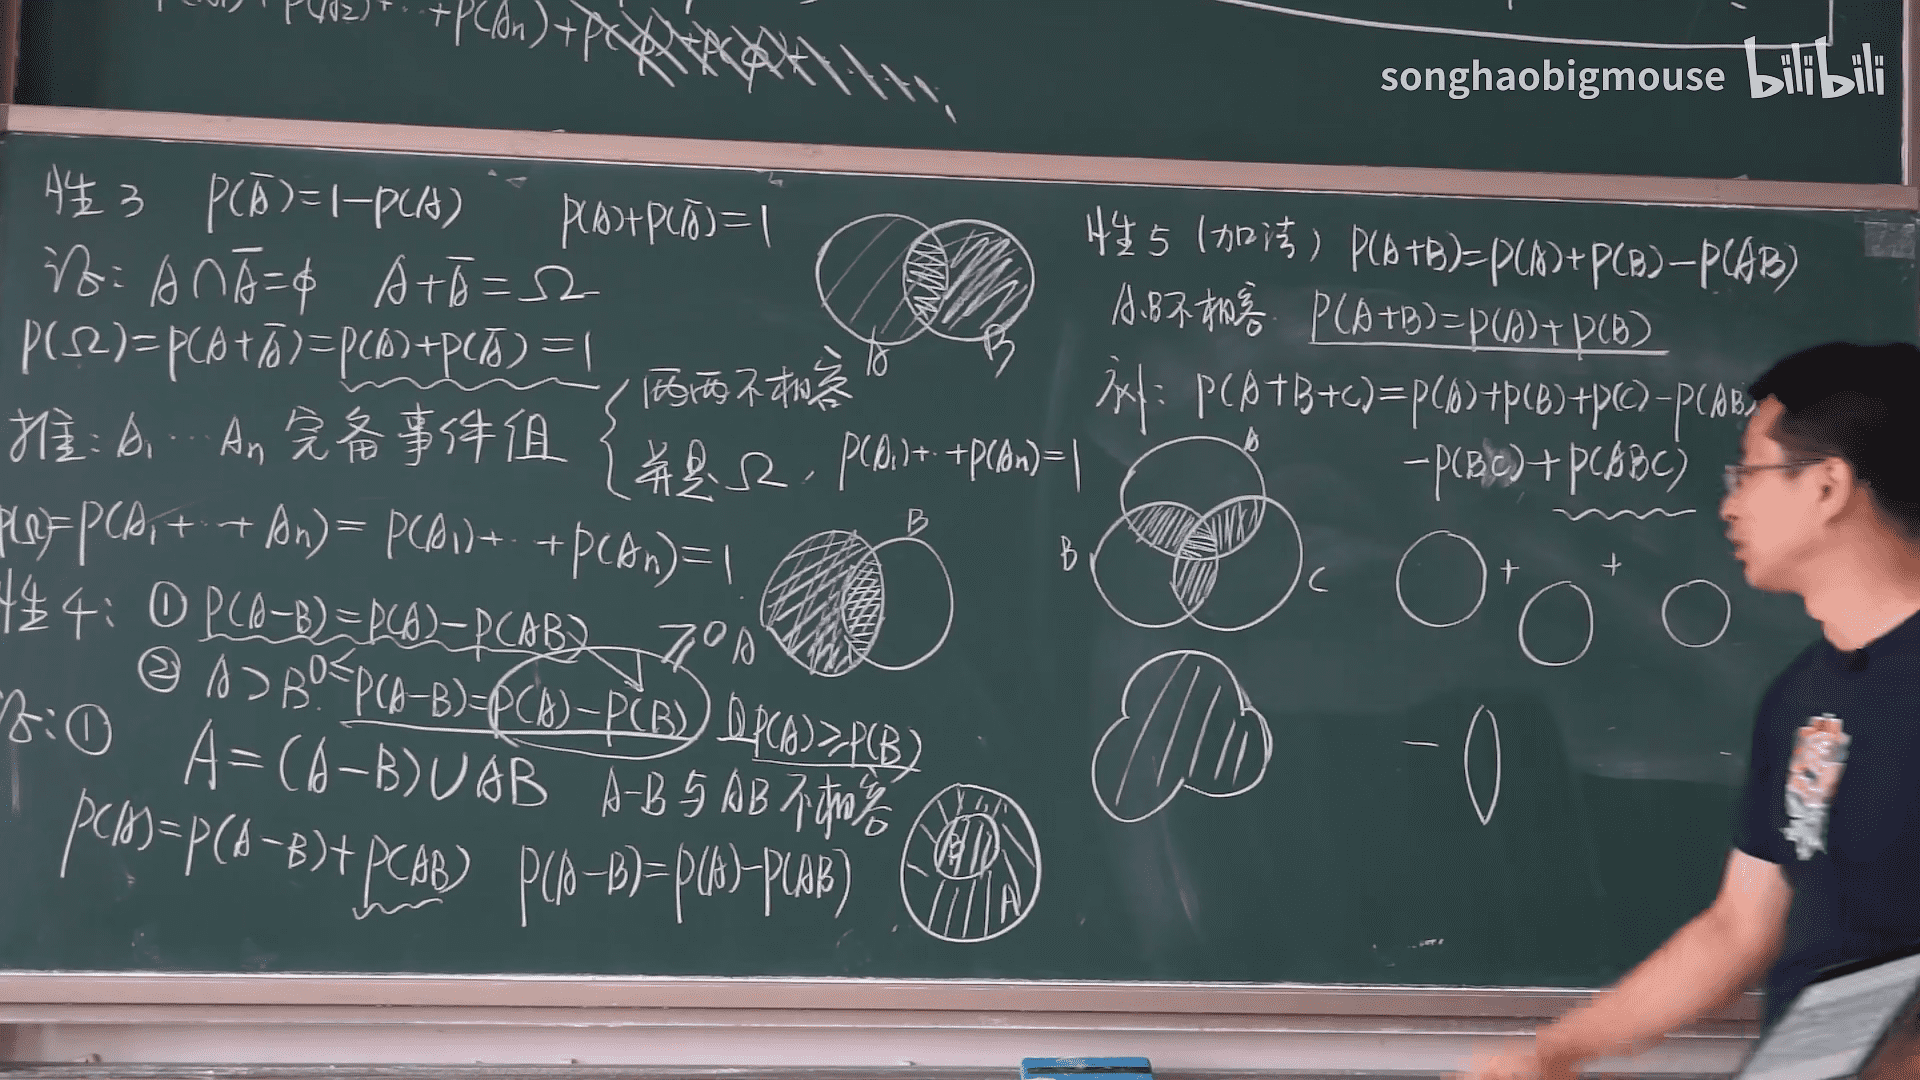 +P(An)+P(φ)+P(φ)+……
songhaobigmouse bilibili
性3 P(A̅)=1-P(A) P(A)+P(A̅)=1
证: A∩A̅=φ A+A̅=Ω
P(Ω)=P(A+A̅)=P(A)+P(A̅)=1
推: A₁…An 完备事件组 { 两两不相容
并是Ω, P(A₁)+…+P(An)=1
P(Ω)=P(A₁+…+An)=P(A₁)+…+P(An)=1
性4: ① P(A-B)=P(A)-P(AB) ≥0
② A⊃B 0≤P(A-B)=P(A)-P(B) 且P(A)≥P(B)
证:① A=(A-B)∪AB A-B与AB不相容
P(A)=P(A-B)+P(AB) P(A-B)=P(A)-P(AB)
A B
B
A
B A
性5 (加法) P(A+B)=P(A)+P(B)-P(AB)
A.B不相容. P(A+B)=P(A)+P(B)
P(A+B+C)=P(A)+P(B)+P(C)-P(AB)
-P(BC)+P(ABC)
A
B C
+ +
-